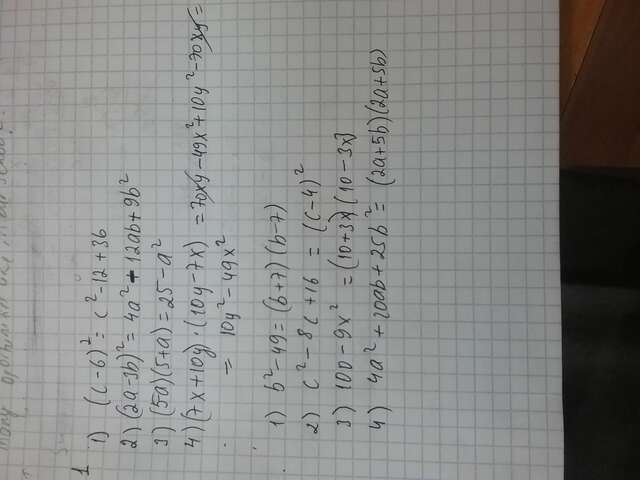 many opportunities
1
1) (c-6)² = c²-12+36
2) (2a-3b)² = 4a² - 12ab + 9b²
3) (5a)(5+a) = 25-a²
4) (7x+10y)·(10y-7x) = 70xy - 49x² + 10y² - 70xy =
= 10y² - 49x²
1) b²-49 = (b+7)(b-7)
2) c²-8c+16 = (c-4)²
3) 100-9x² = (10+3x)(10-3x)
4) 4a²+20ab+25b² = (2a+5b)(2a+5b)